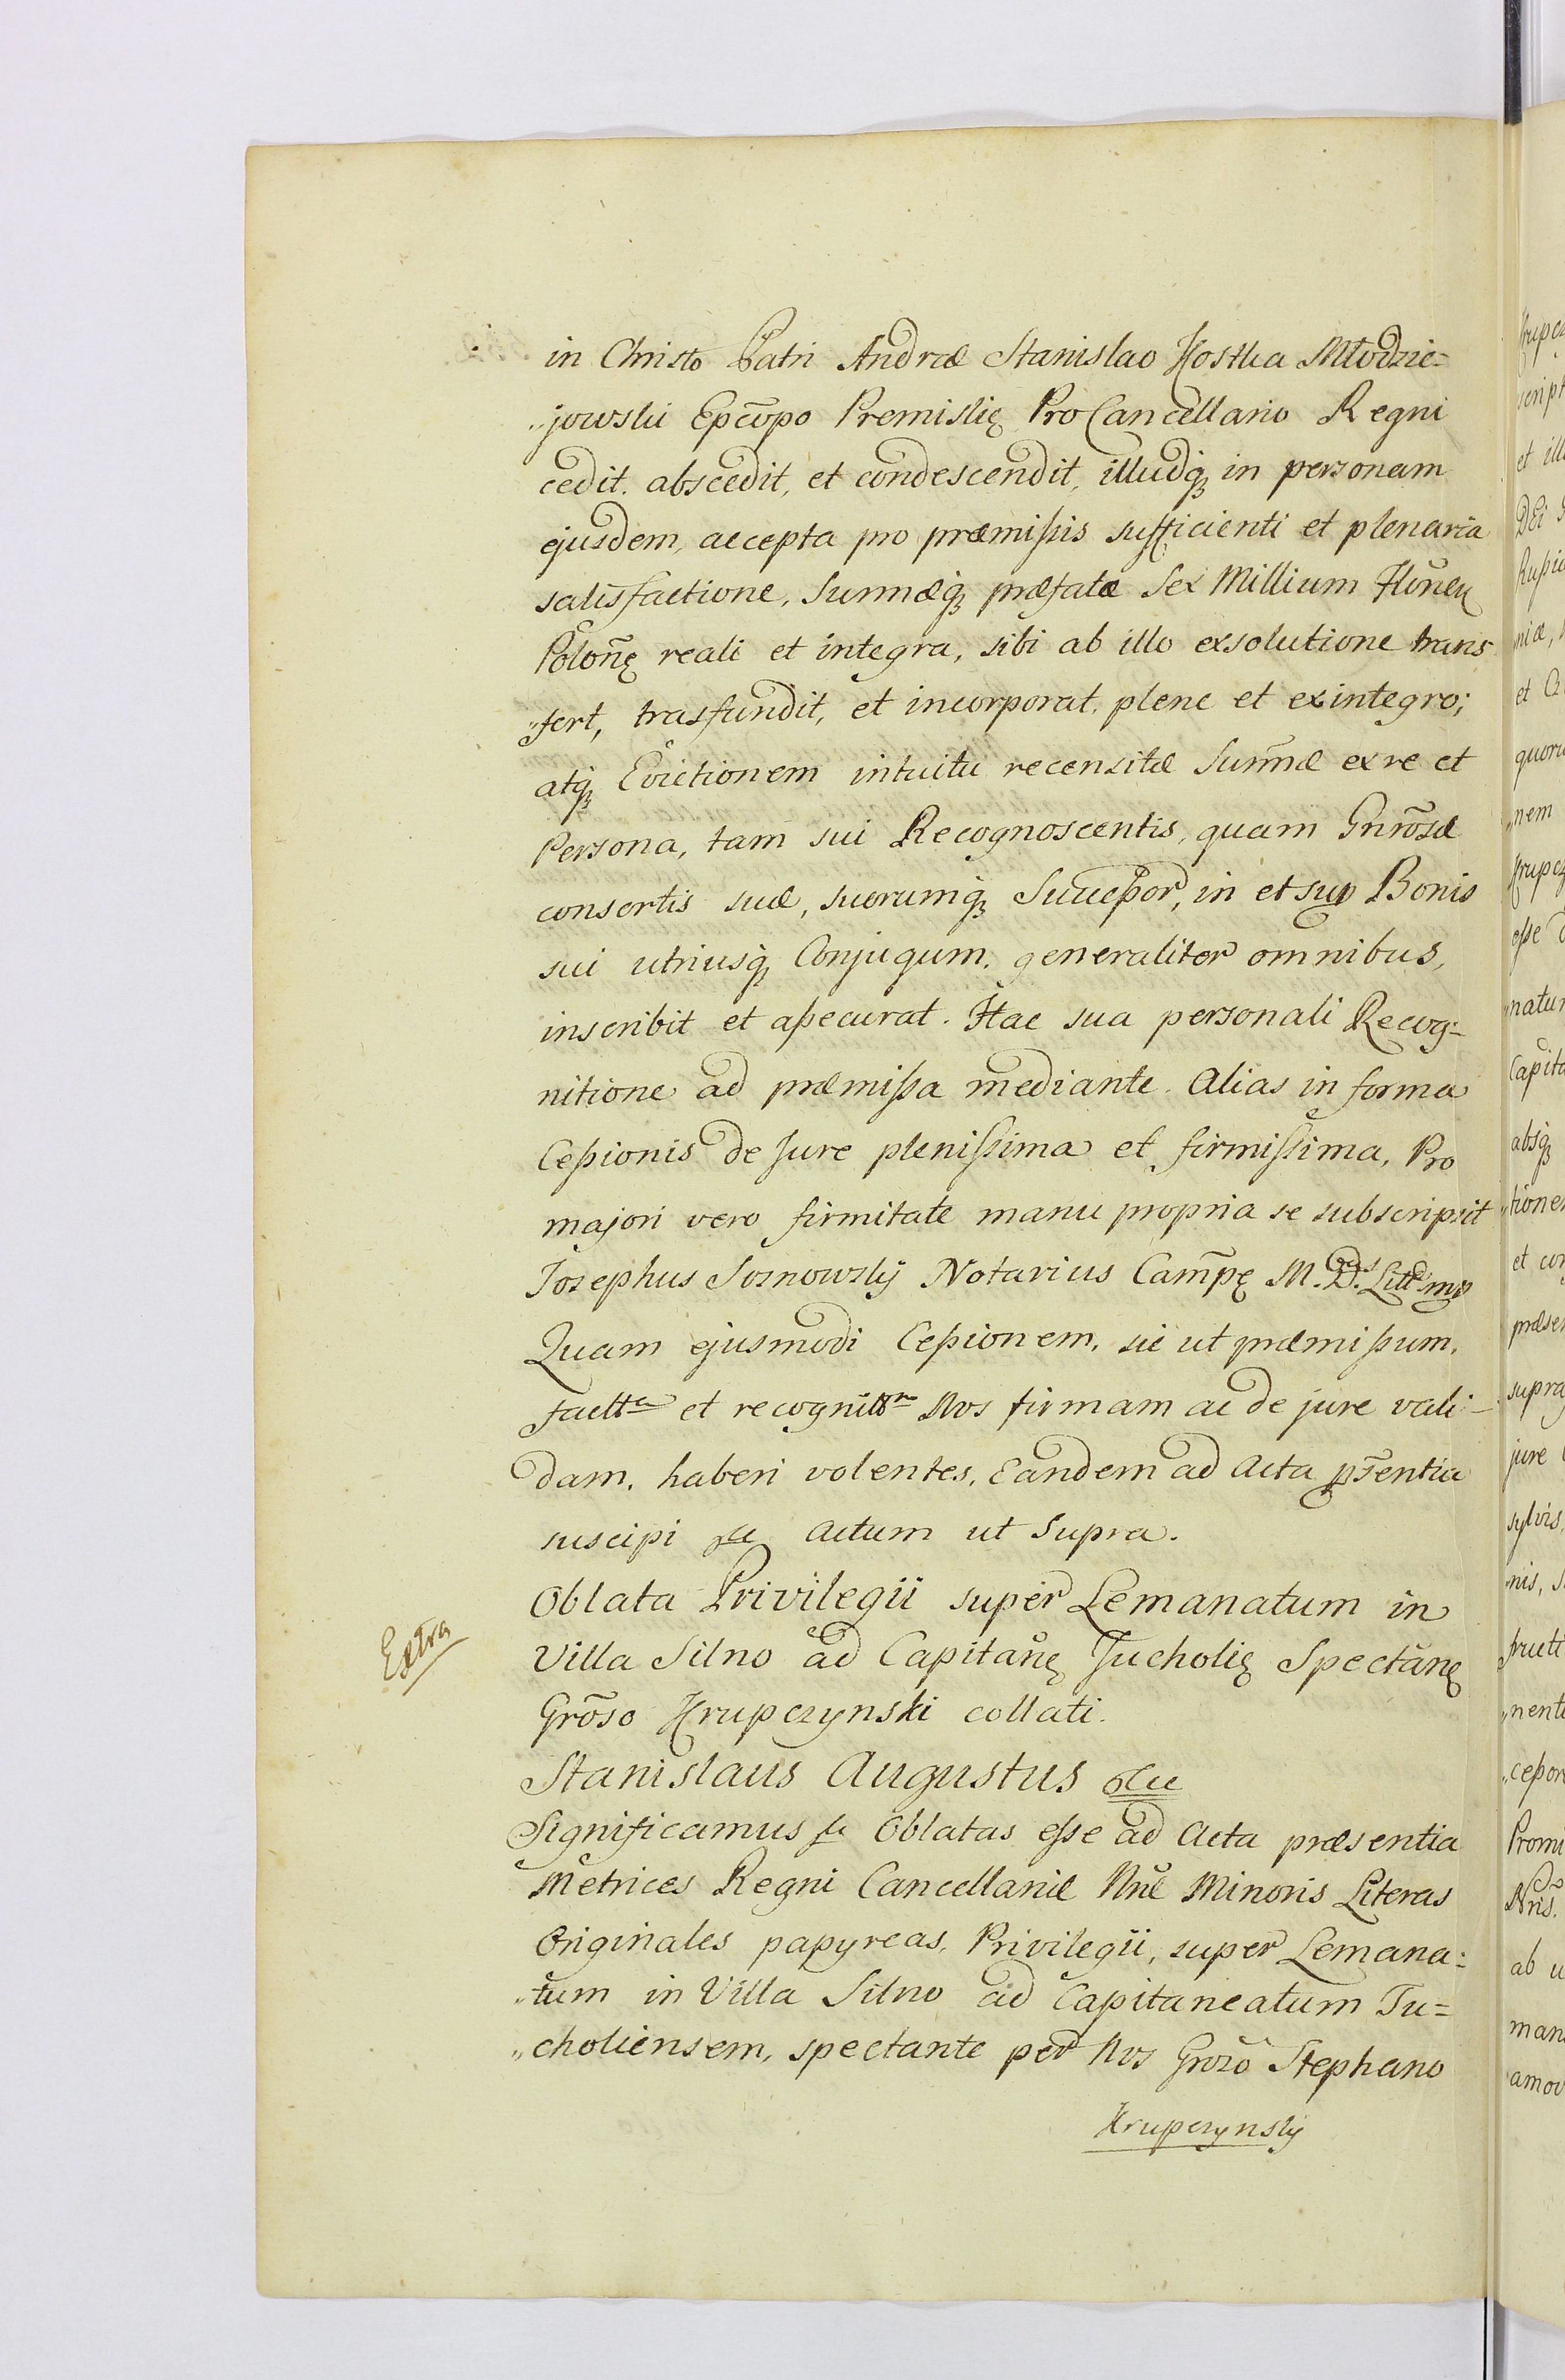 in Christo Patri Andreæ Stanislao Kostka Młodzie=
„jowski Epcõpo Premislię Pro Cancellario Regni
cedit. abscedit, et condescendit, illudq; in personam
ejusdem, accepta pro præmissis sufficienti et plenaria
satisfactione, Summæq; præfatæ Sex Millium
Polonę reali et integra, sibi ab illo exsolutione trans
„fert, trasfundit, et incorporat. plene et ex integro;
atq; Evictionem intuitu recensitæ Sum̃æ ex re et
Persona, tam sui Recognoscentis, quam Gnrõsæ
consortis suæ, suorumq; Successor, in et sup Bonis
sui utriusq; Conjugum. generaliter omnibus,
inscribit et assecurat. Hac sua personali Recog=
nitione ad præmissa mediante. Alias in forma
Cessionis de Jure plenissima et firmissima, Pro
majori vero firmitate manu propria se subscripsit
Josephus Sosnowskÿ Notarius Cam̃pę M. D. Litt. mp
Quam ejusmodi Cessionem, sic ut præmissum,
et Nos firmam ac de jure vali=
dam, haberi volentes, Eandem ad Acta pr̃sentia
suscipi &c Actum ut Supra.
Extra
Oblata Privilegii super Lemanatum in
Villa Silno ad Capitanę Tucholię Spectanę
Grõso Krupczynski collati.
Stanislaus Augustus &c
Significamus &c Oblatas esse ad Acta præsentia
Metrices Regni Cancellariæ Nræ Minoris Literas
Originales papyreas, Privilegii, super Lemana=
„tum in Villa Silno ad Capitaneatum Tu=
„choliensem, spectante per Nos Grõso Stephano
Krupczynskÿ